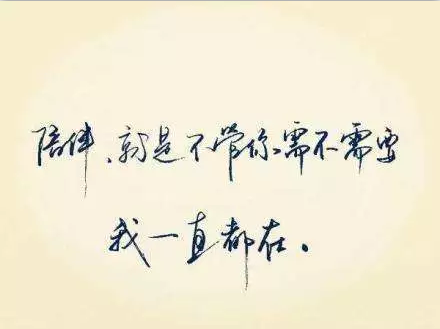 陪伴、就是不管你需不需要
我一直都在。